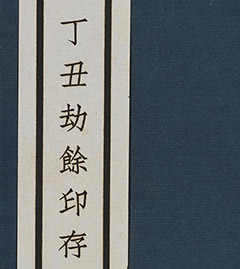 丁丑劫餘印存